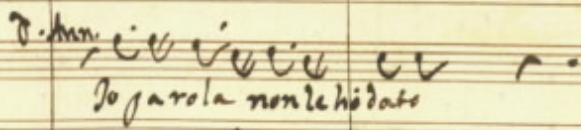 D. Ann.
Io parola non le hò dato